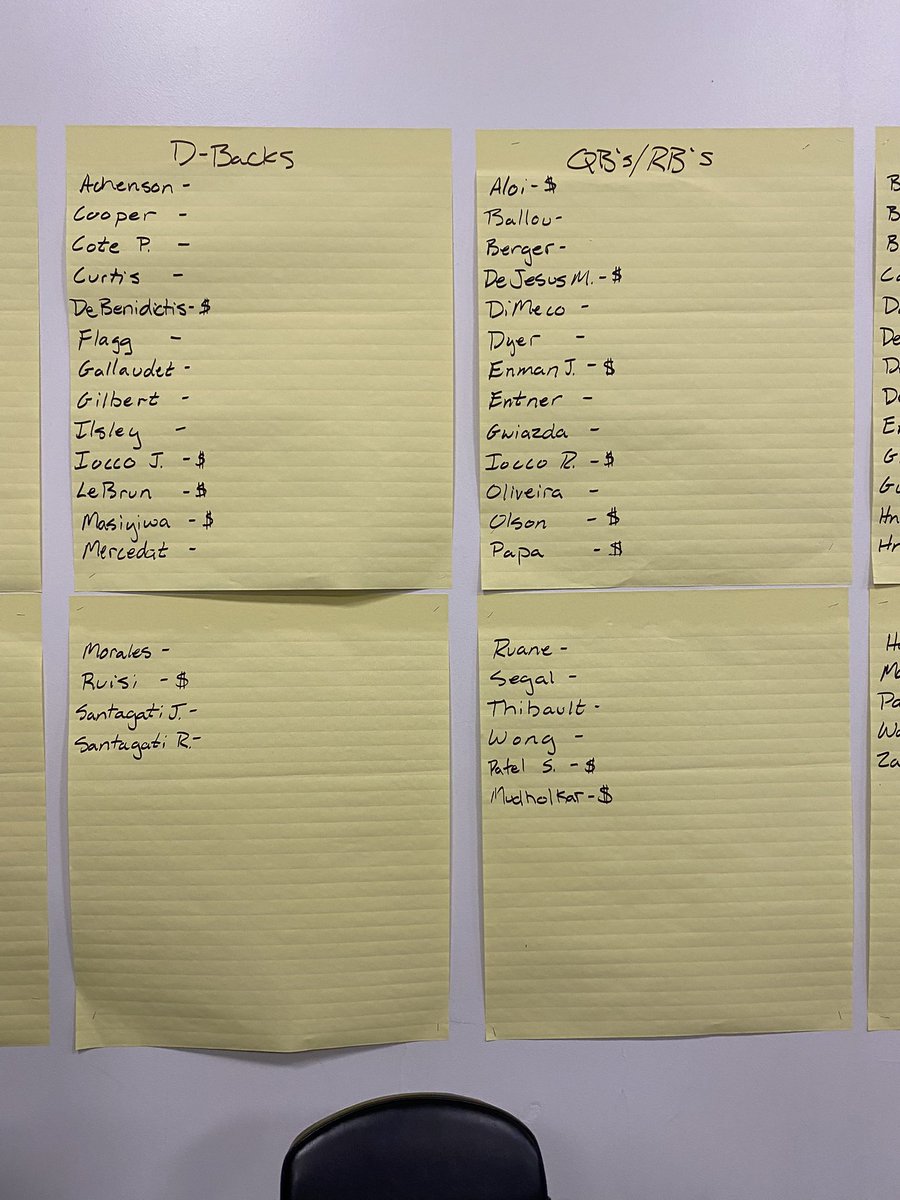 D-Backs
Achenson -
Cooper -
Cote P. -
Curtis -
DeBenidictis-$
Flagg -
Gallaudet -
Gilbert -
Ilsley -
Iocco J. -$
LeBrun -$
Masiyiwa -$
Mercedat -
Morales -
Ruisi -$
Santagati J.-
Santagati R.-
QB's/RB's
Aloi-$
Ballou-
Berger-
DeJesus M.-$
DiMeco -
Dyer -
Enman J. -$
Entner -
Gwiazda -
Iocco R. -$
Oliveira -
Olson -$
Papa -$
Ruane -
Segal -
Thibault -
Wong -
Patel S. -$
Mudholkar-$